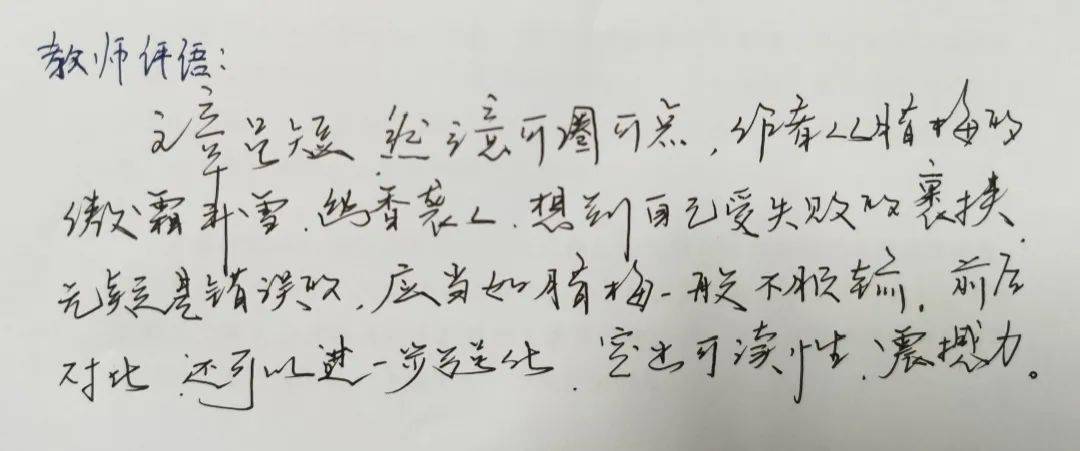 教师评语：
文章虽短，然立意可圈可点，作者从腊梅的
傲霜斗雪，幽香袭人，想到自己受失败的裹挟，
无疑是错误的，应当如腊梅一般不顺流。前后
对比，还可以进一步强化，突出可读性、震撼力。